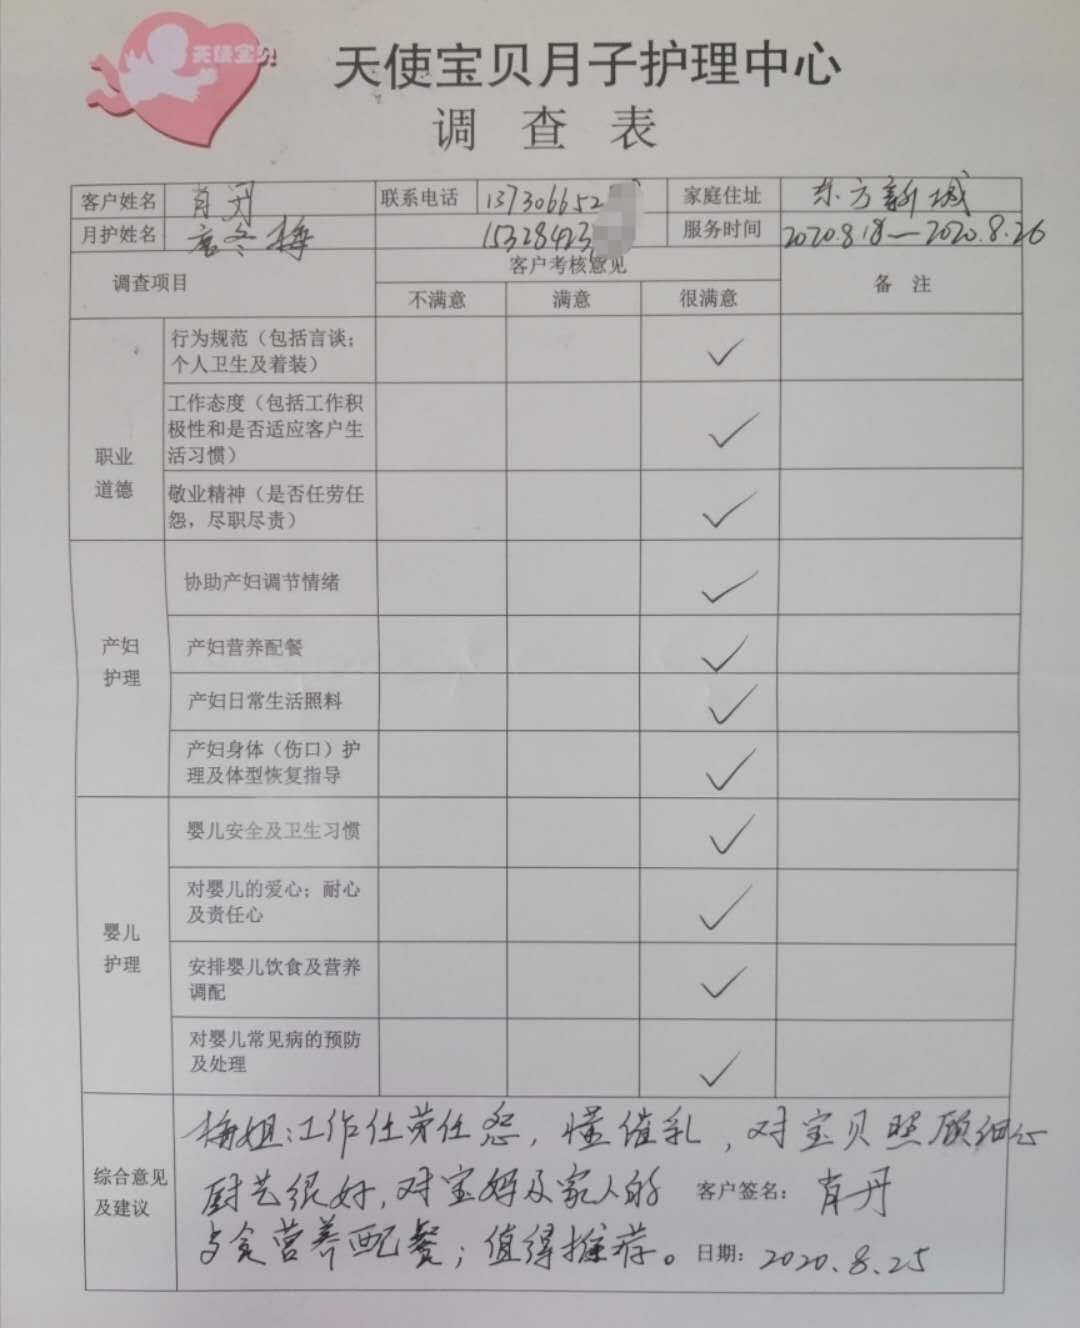 天使宝贝
天使宝贝月子护理中心
调查表
客户姓名 肖丹 联系电话 137306652 家庭住址 东方新城
月护姓名 唐冬梅 15328423 服务时间 2020.8.18—2020.8.26
调查项目 客户考核意见 备注
不满意 满意 很满意
职业
道德
行为规范（包括言谈；
个人卫生及着装） ✓
工作态度（包括工作积
极性和是否适应客户生
活习惯） ✓
敬业精神（是否任劳任
怨，尽职尽责） ✓
产妇
护理
协助产妇调节情绪 ✓
产妇营养配餐 ✓
产妇日常生活照料 ✓
产妇身体（伤口）护
理及体型恢复指导 ✓
婴儿
护理
婴儿安全及卫生习惯 ✓
对婴儿的爱心；耐心
及责任心 ✓
安排婴儿饮食及营养
调配 ✓
对婴儿常见病的预防
及处理 ✓
综合意见
及建议
梅姐：工作任劳任怨，懂催乳，对宝贝照顾细心
厨艺很好，对宝妈及家人的
食营养配餐；值得推荐。
客户签名：肖丹
日期：2020.8.25